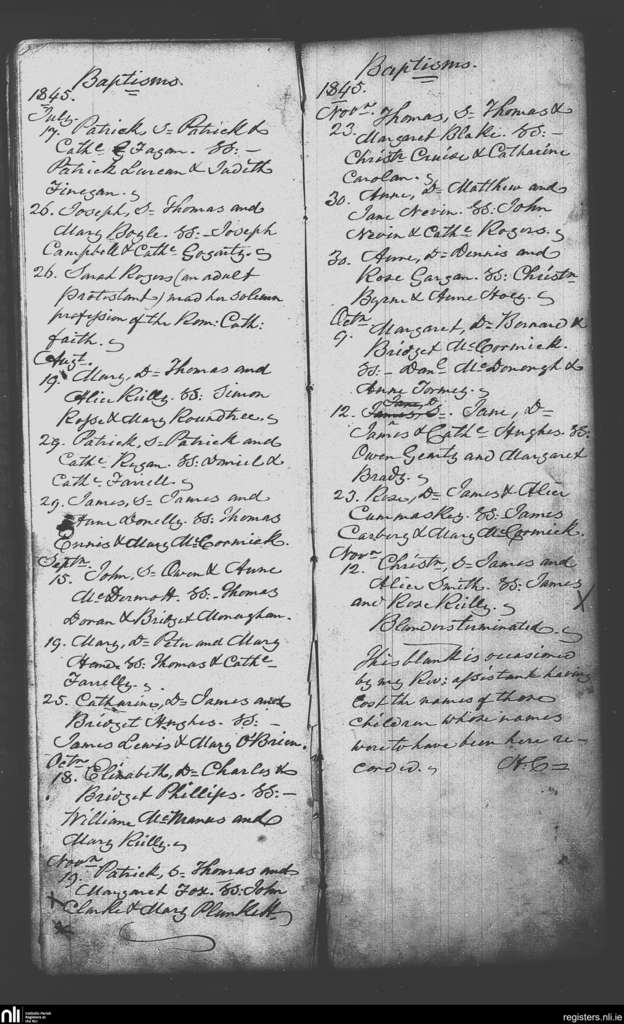 Baptisms.
1845.
July.
17. Patrick, S= Patrick &
Cathe Fagan. SS: –
Patrick Lunean & Judith
Finegan.
26. Joseph, S= Thomas and
Mary Boyle. SS: – Joseph
Campbell & Cathe Gogarty.
26. Sarah Rogers (an adult
protestant) mad her solemn
profession of the Rom: Cath:
faith.
Augt.
19. Mary, D= Thomas and
Alice Reilly. SS: Simon
Rosse & Mary Roundtree.
29. Patrick, S= Patrick and
Cathe Regan. SS: Daniel &
Cathe Farrell.
29. James, S= James and
Anne Donelly. SS: Thomas
Ennis & Mary McCormick.
Septr.
15. John, S= Owen & Anne
McDermott. SS: – Thomas
Doran & Bridget Monaghan.
19. Mary, D= Peter and Mary
SS: Thomas & Cathe
Farrelly.
25. Catharine, D= James and
Bridget Hughes. SS: –
James Lewis & Mary O'Brien.
Octr.
18. Elizabeth, D= Charles &
Bridget Phillips. SS: –
William McManus and
Mary Reilly.
Novr.
19. Patrick, S= Thomas and
Margaret Fox. SS: John
Clarke & Mary Plunkett.
Baptisms.
1845.
Novr.
23. Thomas, S= Thomas &
Margaret Blake. SS: –
Christr Cruise & Catharine
Carolan.
30. Anne, D= Matthew and
Jane Nevin. SS: John
Nevin & Cathe Rogers.
30. Anne, D= Dennis and
Rose Gargan. SS: Christr
Byrne & Anne Hoey.
Octr.
9. Margaret, D= Bernard &
Bridget McCormick.
SS: – Danl McDonogh &
Anne Tormey.
Jane, D
12. James, S=. Jane, D=
James & Cathe Hughes. SS:
Owen Geraty and Margaret
Brady.
23. Rose, D= James & Alice
Cummaskey. SS: James
Carberry & Mary McCormick.
Novr.
12. Christr, S= James and
Alice Smith. SS: James
and Rose Reilly.
Blunders terminated.
This blank is occasioned
by my Rev: assistant having
lost the names of those
children whose names
were to have been here re-
corded. H.C=
nli
Catholic Parish
Registers at
the NLI
registers.nli.ie